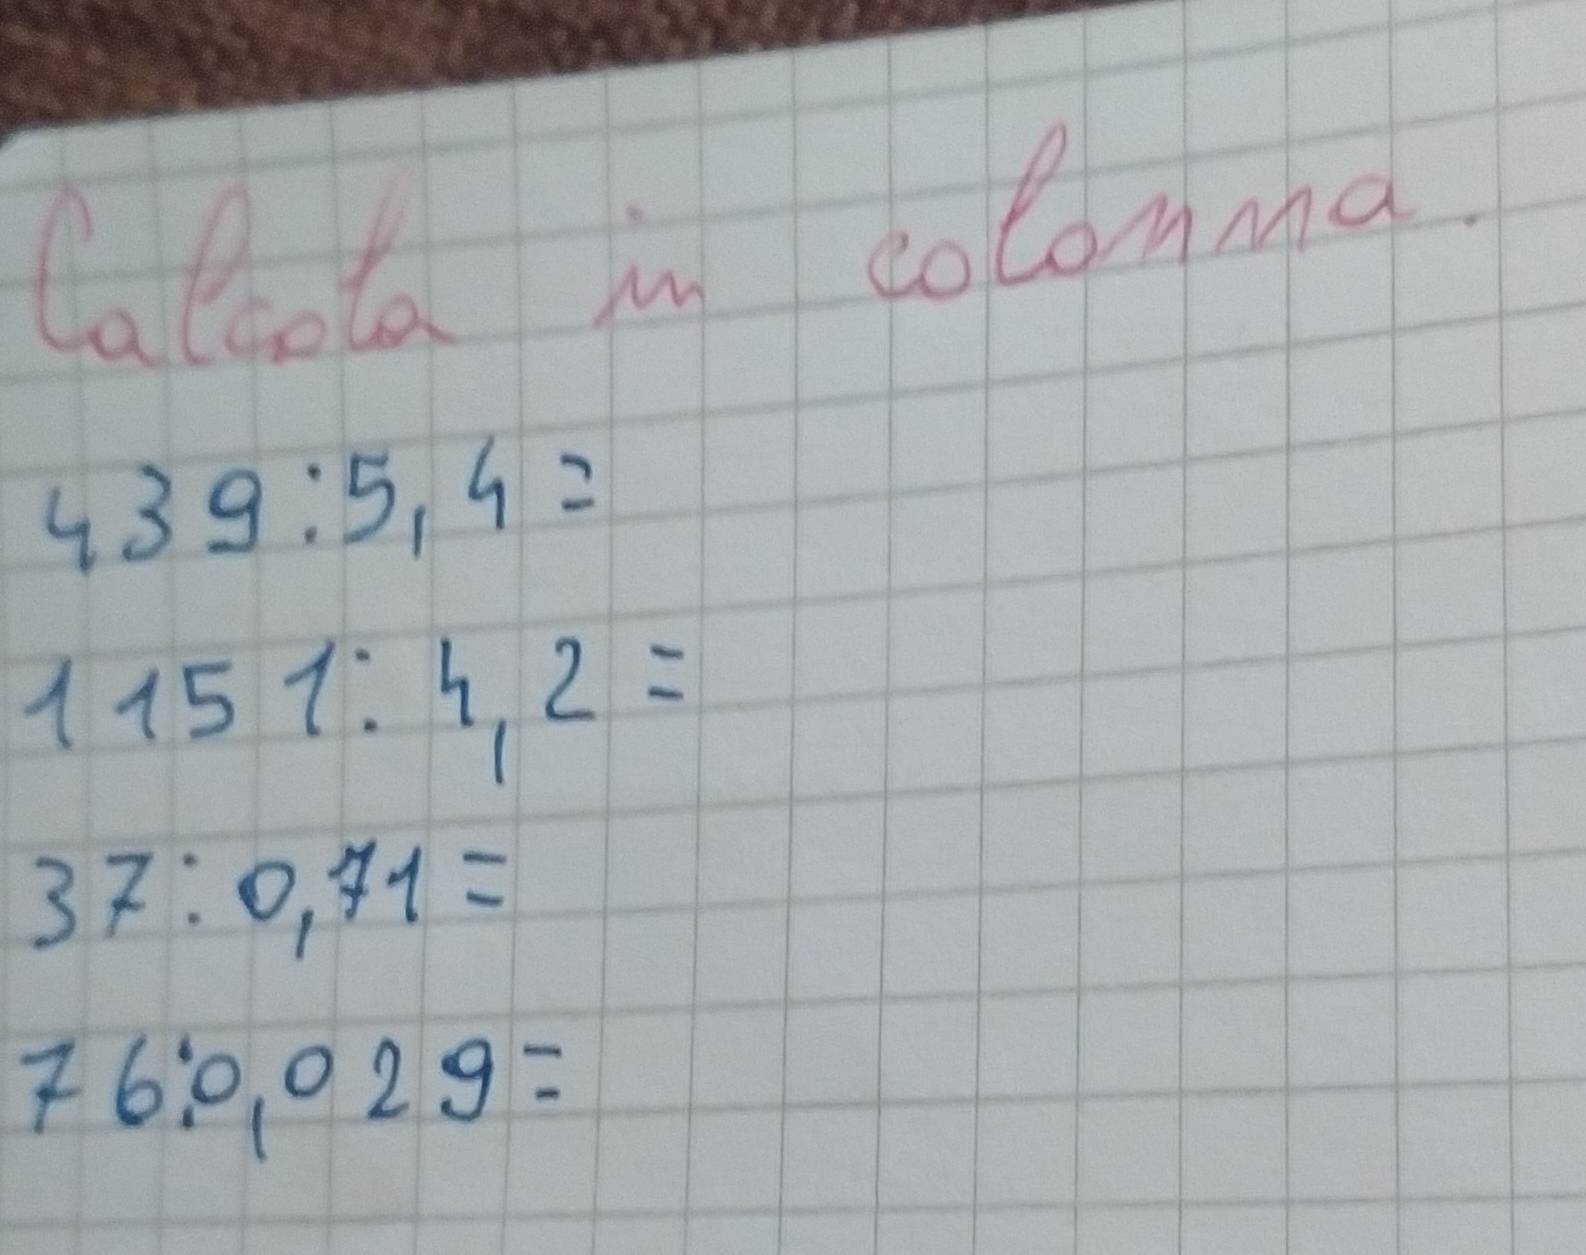 Calcola in colonna.
439:5,4=
1151:4,2=
37:0,71=
76:0,029=